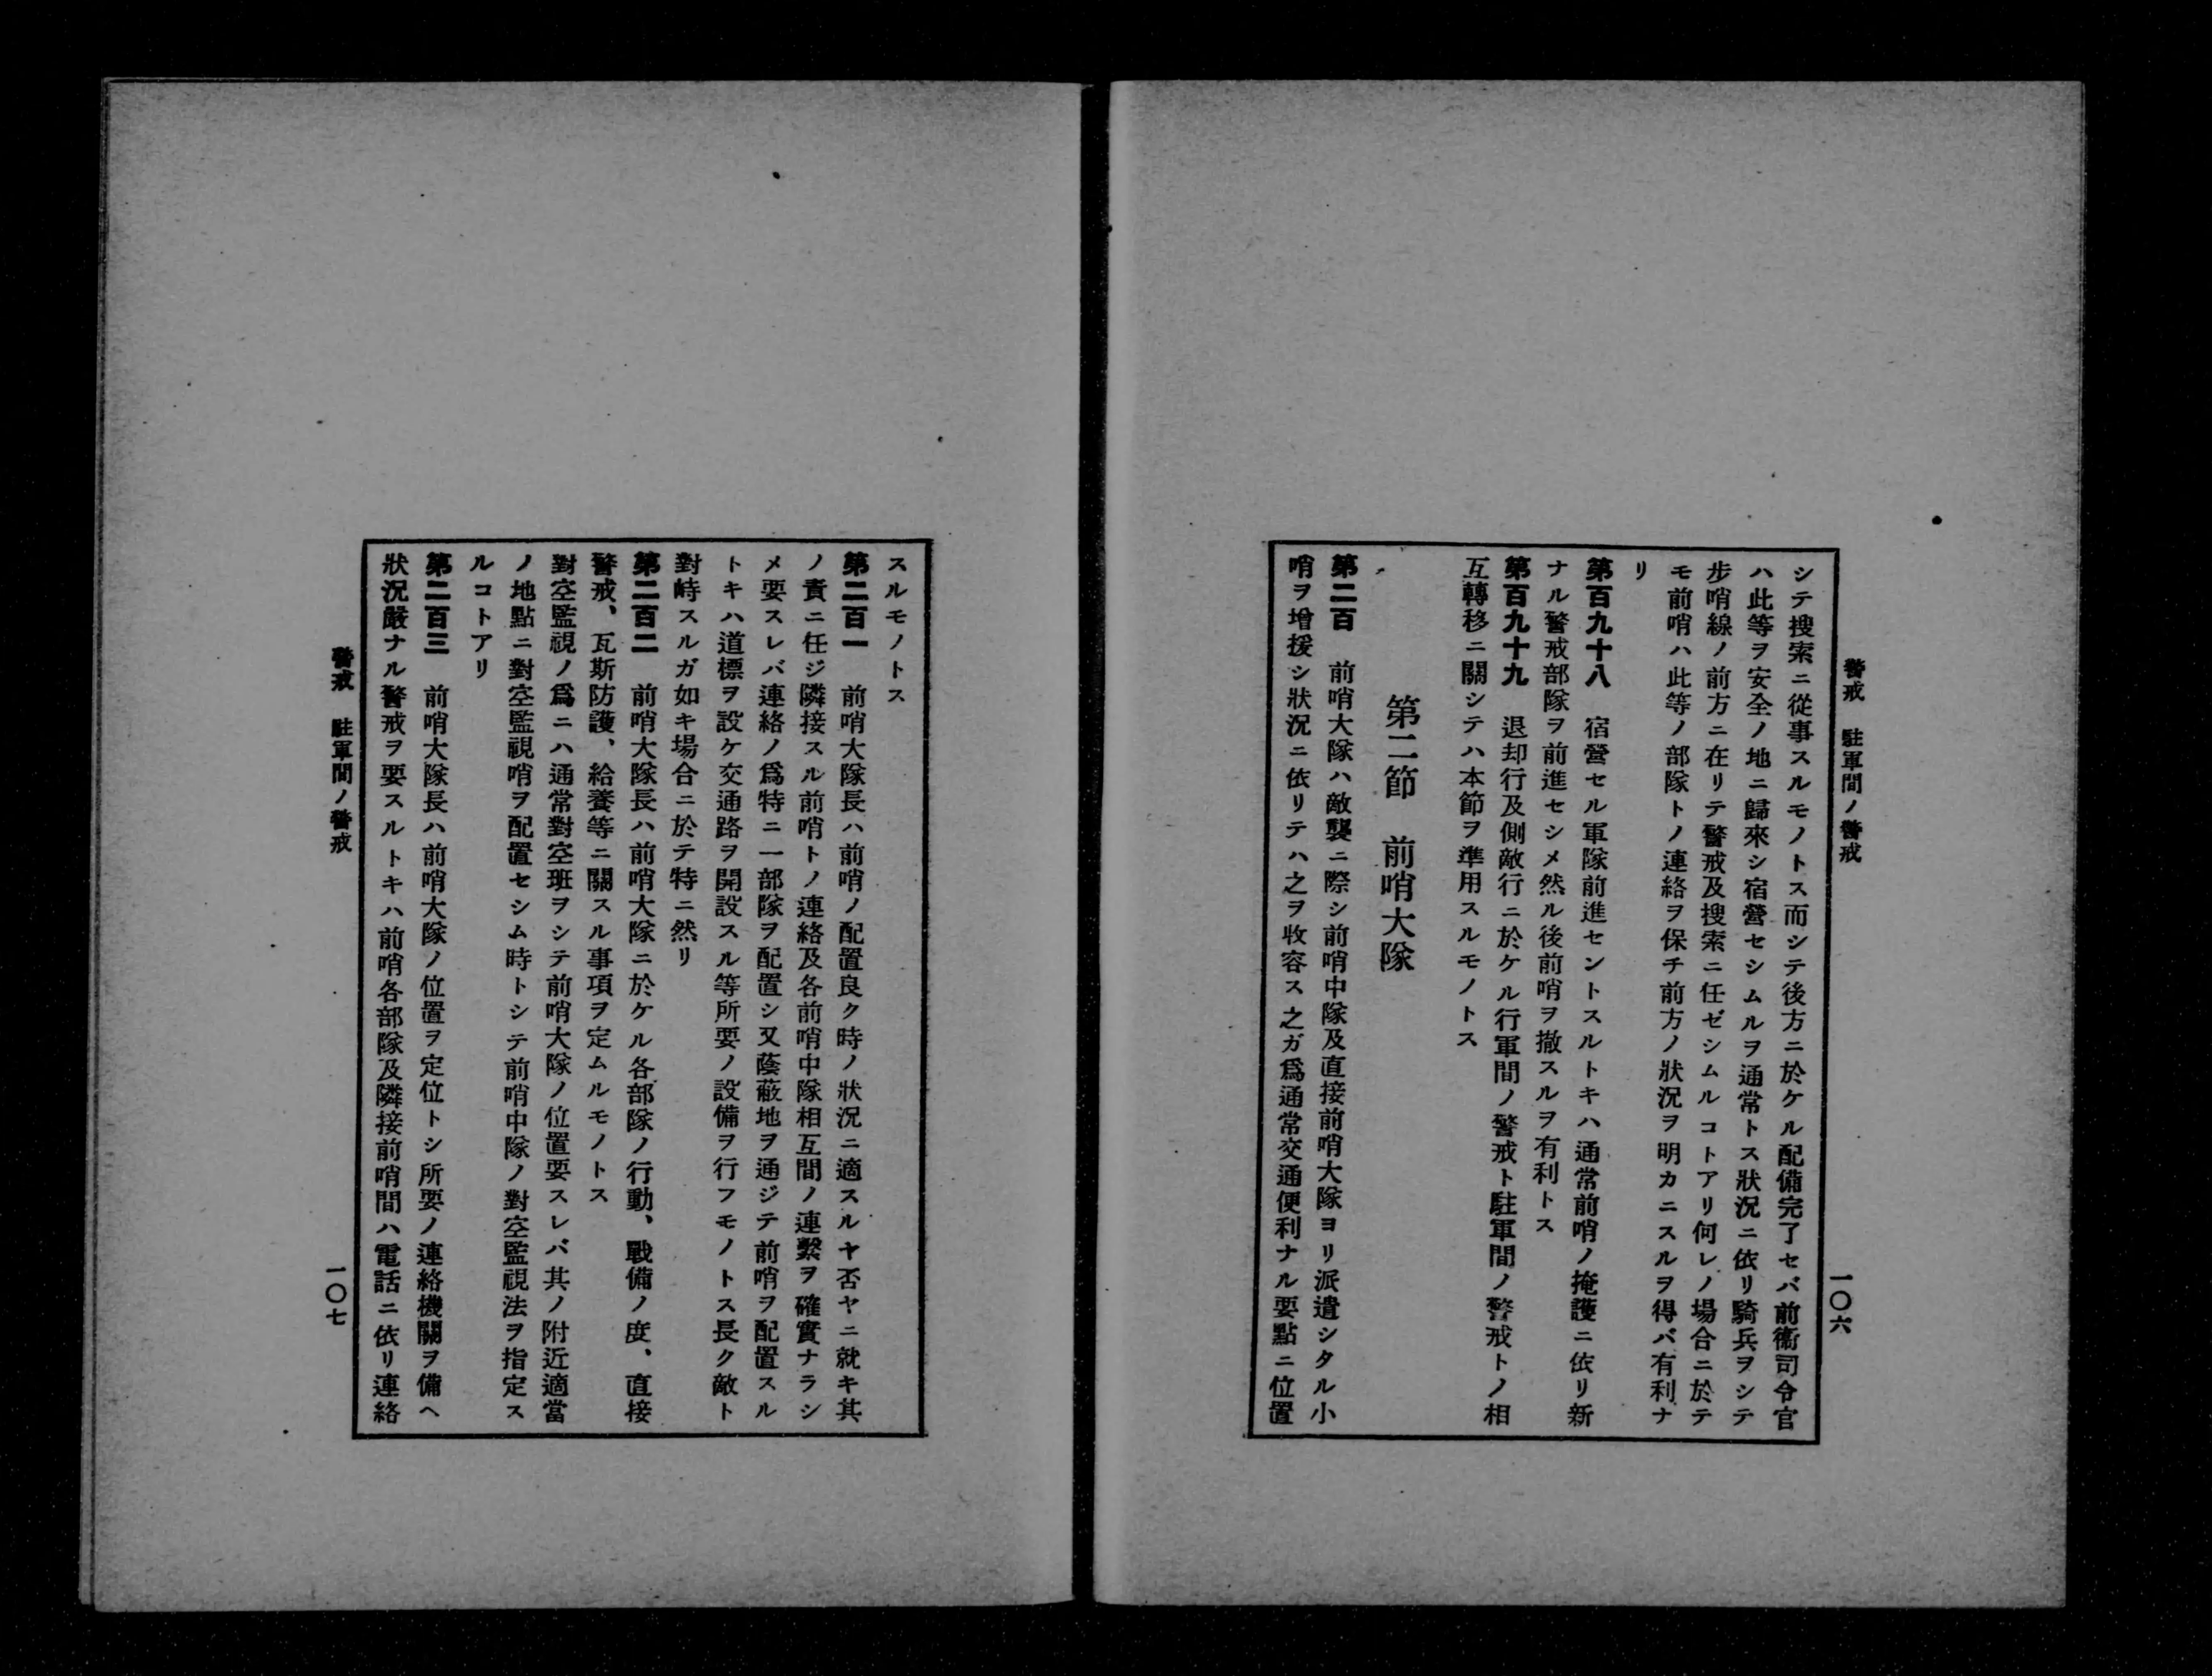 警戒　駐軍間ノ警戒
一〇六
シテ搜索ニ從事スルモノトス而シテ後方ニ於ケル配備完了セバ前衞司令官
ハ此等ヲ安全ノ地ニ歸來シ宿營セシムルヲ通常トス狀況ニ依リ騎兵ヲシテ
步哨線ノ前方ニ在リテ警戒及搜索ニ任ゼシムルコトアリ何レノ場合ニ於テ
モ前哨ハ此等ノ部隊トノ連絡ヲ保チ前方ノ狀況ヲ明カニスルヲ得バ有利ナ
リ
第百九十八　宿營セル軍隊前進セントスルトキハ通常前哨ノ掩護ニ依リ新
ナル警戒部隊ヲ前進セシメ然ル後前哨ヲ撤スルヲ有利トス
第百九十九　退却行及側敵行ニ於ケル行軍間ノ警戒ト駐軍間ノ警戒トノ相
互轉移ニ關シテハ本節ヲ準用スルモノトス
第二節　前哨大隊
第二百　前哨大隊ハ敵襲ニ際シ前哨中隊及直接前哨大隊ヨリ派遣シタル小
哨ヲ增援シ狀況ニ依リテハ之ヲ收容ス之ガ爲通常交通便利ナル要點ニ位置
スルモノトス
第二百一　前哨大隊長ハ前哨ノ配置良ク時ノ狀況ニ適スルヤ否ヤニ就キ其
ノ責ニ任ジ隣接スル前哨トノ連絡及各前哨中隊相互間ノ連繫ヲ確實ナラシ
メ要スレバ連絡ノ爲特ニ一部隊ヲ配置シ又蔭蔽地ヲ通ジテ前哨ヲ配置スル
トキハ道標ヲ設ケ交通路ヲ開設スル等所要ノ設備ヲ行フモノトス長ク敵ト
對峙スルガ如キ場合ニ於テ特ニ然リ
第二百二　前哨大隊長ハ前哨大隊ニ於ケル各部隊ノ行動、戰備ノ度、直接
警戒、瓦斯防護、給養等ニ關スル事項ヲ定ムルモノトス
對空監視ノ爲ニハ通常對空班ヲシテ前哨大隊ノ位置要スレバ其ノ附近適當
ノ地點ニ對空監視哨ヲ配置セシム時トシテ前哨中隊ノ對空監視法ヲ指定ス
ルコトアリ
第二百三　前哨大隊長ハ前哨大隊ノ位置ヲ定位トシ所要ノ連絡機關ヲ備ヘ
狀況嚴ナル警戒ヲ要スルトキハ前哨各部隊及隣接前哨間ハ電話ニ依リ連絡
警戒　駐軍間ノ警戒
一〇七